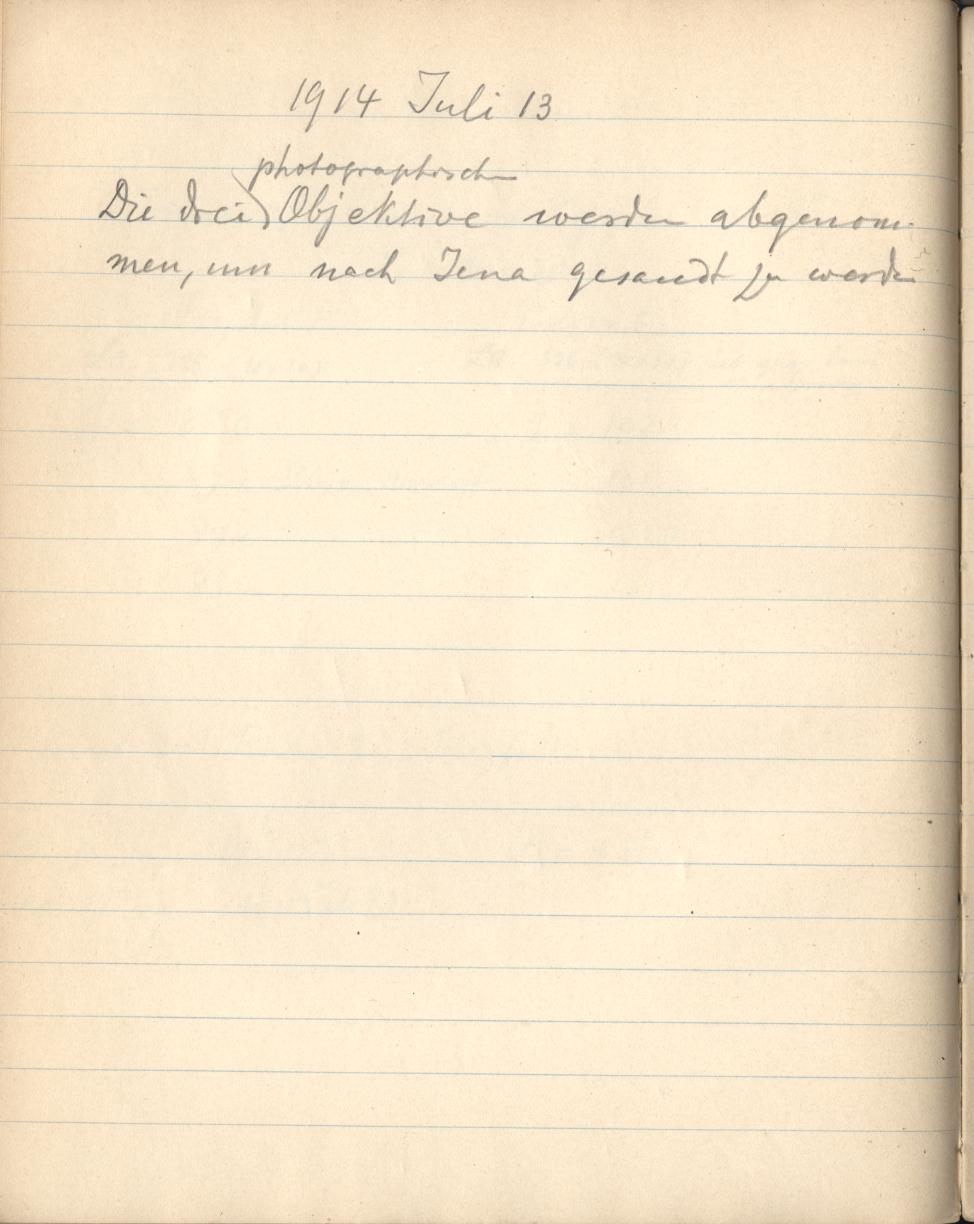 1914 Juli 13
photographischen
Die drei Objektive werden abgenom-
men, um nach Jena gesandt zu werden